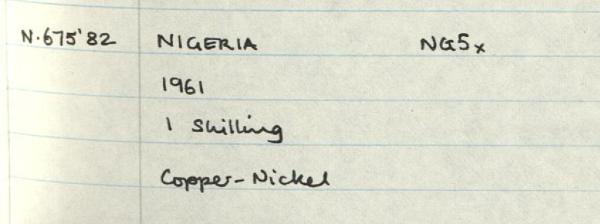 N.675'82 NIGERIA NG5x
1961
1 Shilling
Copper-Nickel